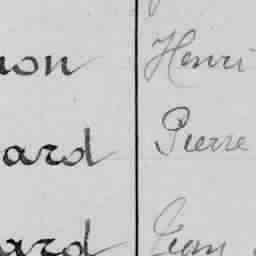 non Henri
ard Pierre
ard Jean